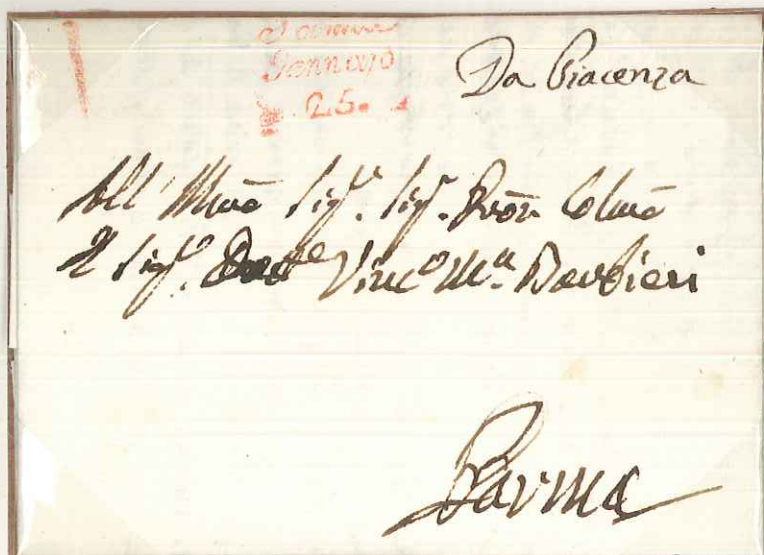 Parma
Gennajo
25.
Da Piacenza
All' Illmō Sigr. Sigr. Pron Colmō
Il Sigr. Dott.e Vinc.o M.a Barbieri
Parma